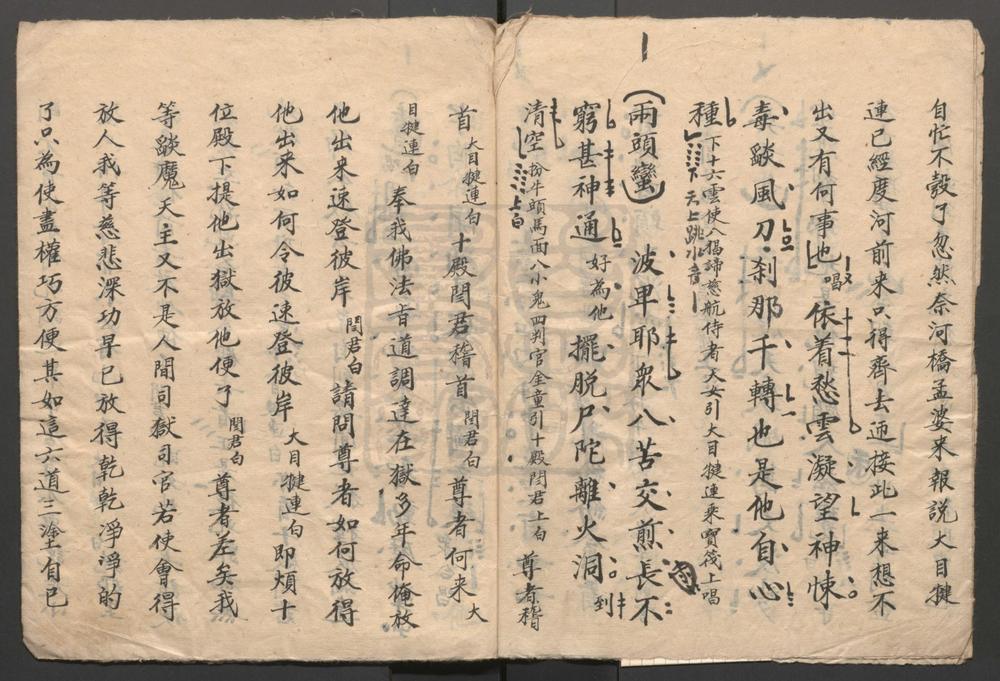 自忙不彀了忽然奈河橋孟婆来報説大目揵
連已經度河前来只得齊去迎接此一来想不
出又有何事也唱依着愁雲凝望神悚
毒燄風刀刹那千轉也是他自心
種下十六雲使八揭諦慈航侍者天女引大目揵連乘寳筏上唱
下天上跳水意
(兩頭蠻)波卑耶衆八苦交煎長不
窮甚神通好為他擺脱尸陀離火洞到
清空扮牛頭馬面八小鬼四判官金童引十殿閆君上白尊者稽
上白
首大目揵連白十殿閆君稽首閆君白尊者何来大
目揵連白奉我佛法旨道調達在獄多年命俺放
他出来速登彼岸閆君白請問尊者如何放得
他出来如何令彼速登彼岸大目揵連白即煩十
位殿下提他出獄放他便了閆君白尊者差矣我
等燄魔天主又不是人間司獄司官若使會得
放人我等慈悲深功早已放得乾乾淨淨的
了只為使盡權巧方便其如這六道三塗自已